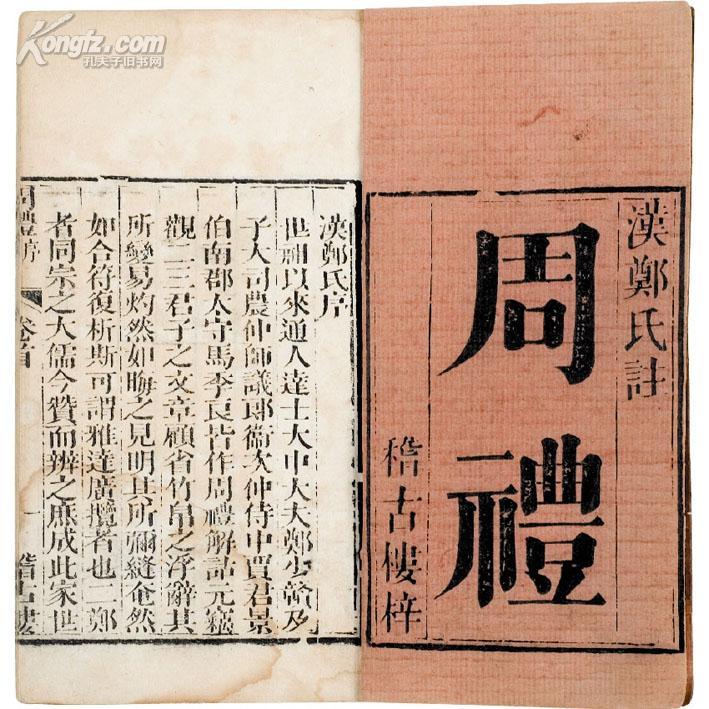 Kongfz.com
孔夫子旧书网
漢鄭氏註
周禮
稽古樓梓
漢鄭氏序
世祖以來通人達士大中大夫鄭少贛及
子大司農仲師議郎衛次仲侍中賈君景
伯南郡太守馬季良皆作周禮解詁元竊
觀二三君子之文章顧省竹帛之浮辭其
所變易灼然如晦之見明其所彌縫奄然
如合符復析斯可謂雅達廣攬者也二鄭
者同宗之大儒今贊而辨之庶成此家世
周禮序 卷首 一 稽古樓